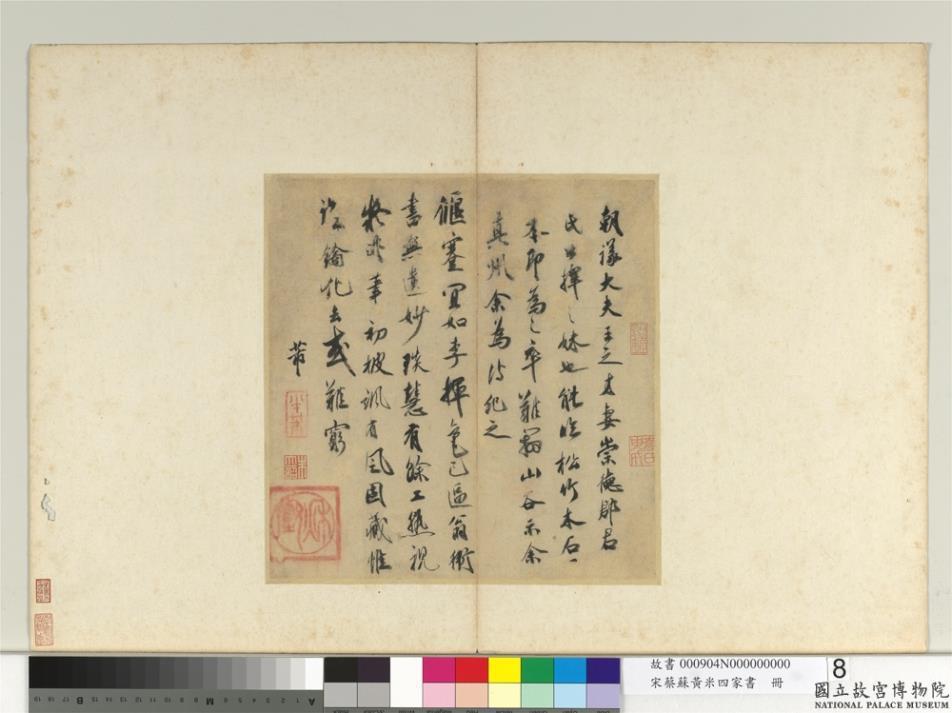 朝議大夫王之才妻崇德郡君
氏公擇之妹也能臨松竹木石一
本即為之卒難辨山谷示余
真州余為詩紀之
偃蹇宜如李揮毫已逼翁衛
書無遺妙琰慧有餘工熟視
疑非筆初披颯有風固藏惟
諗鑰化去或難窮
芾
故書 000904N000000000
宋蔡蘇黃米四家書 冊
8
國立故宮博物院
NATIONAL PALACE MUSEUM